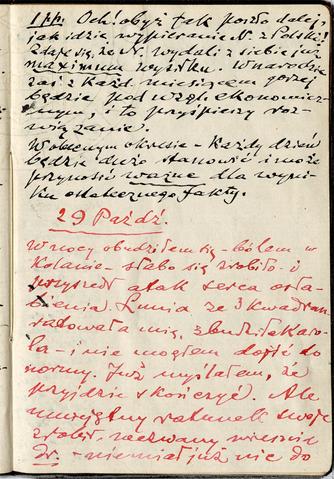 Ach! obyż tak poszło dalej,
jak idzie wypieranie N. z Polski!
Zdaje się, że N. wydali z siebie już
maximum wysiłku. W narodzie
zaś z każd. miesiącem gorzej
będzie pod wzgl. ekonomicz-
nym, i to przyśpieszy roz-
wiązanie.
W obecnym okresie - każdy dzień
będzie dużo stanowić i może
przynosić ważne dla wyni-
ku ostatecznego fakty.
29 Paźdź.
W nocy obudziłem się - bólem w
kolanie - słabo się zrobiło i
przyszedł atak serca osła-
bienia. Lunia ze 3 kwadran.
ratowała mię, zbudziła Karo-
la - i nie mogłem dojść do
normy. Już myślałem, że
przyjdzie skończyć. Ale
umiejętny ratunek swoje
zrobił. wezwany wreszcie
Dr. - niemiał już nic do